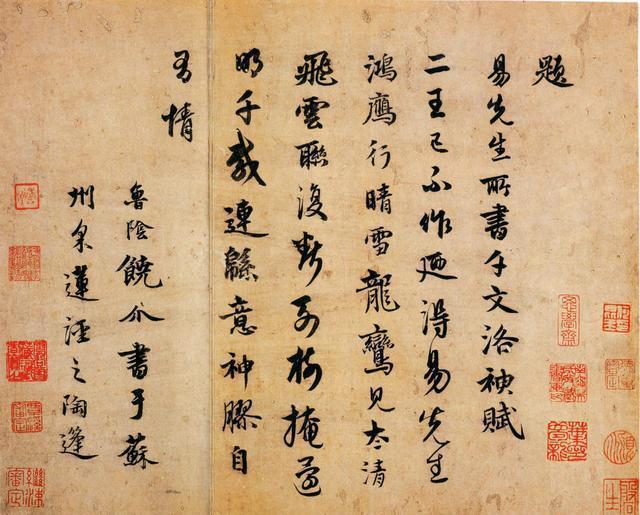 題
易先生所書千文洛神賦
二王已不作迺得易先生
鴻鷹行晴雪龍鸞見太清
飛雲聯復斷列樹掩還
明千載連緜意神膠自
有情
魯陰饒介書于蘇
州采蓮涇之陶蓬